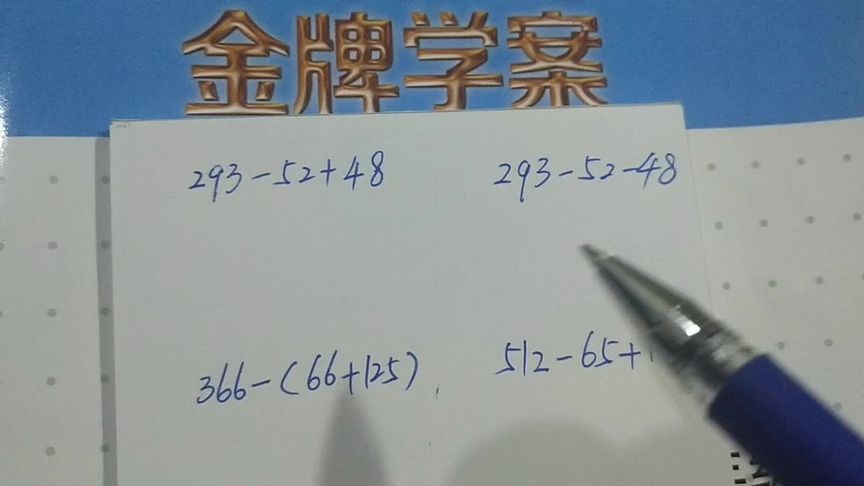 金牌学案
293-52+48
293-52-48
366-(66+125)
512-65+